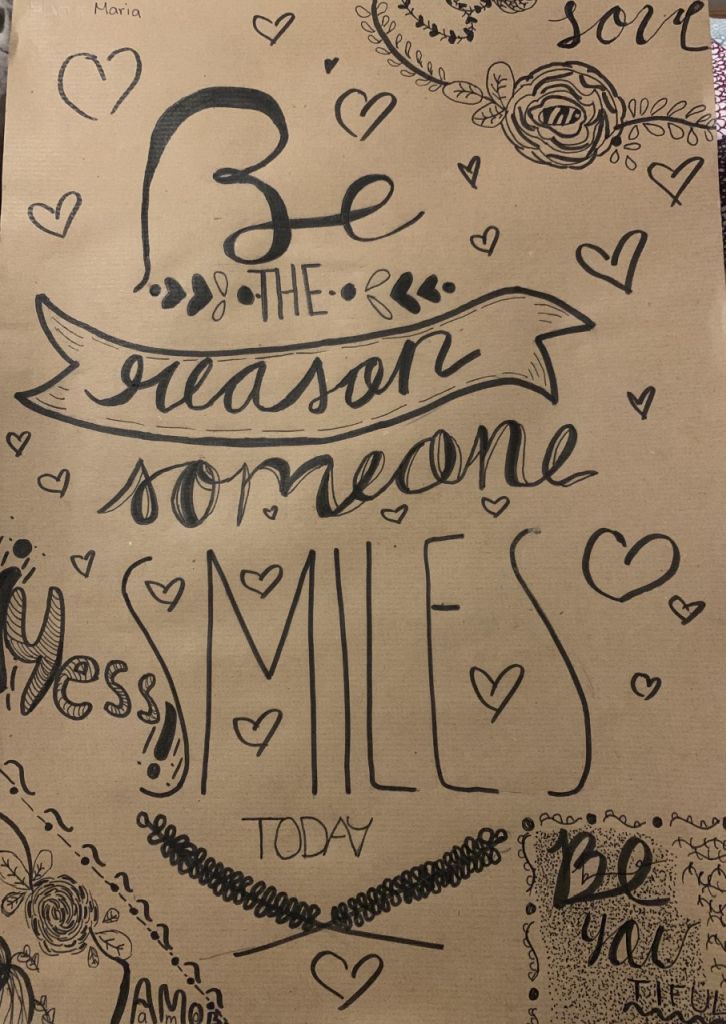 Maria
Be
THE
reason
someone
SMILES
TODAY
Yess,
Be
You
TIFUL
AMOR